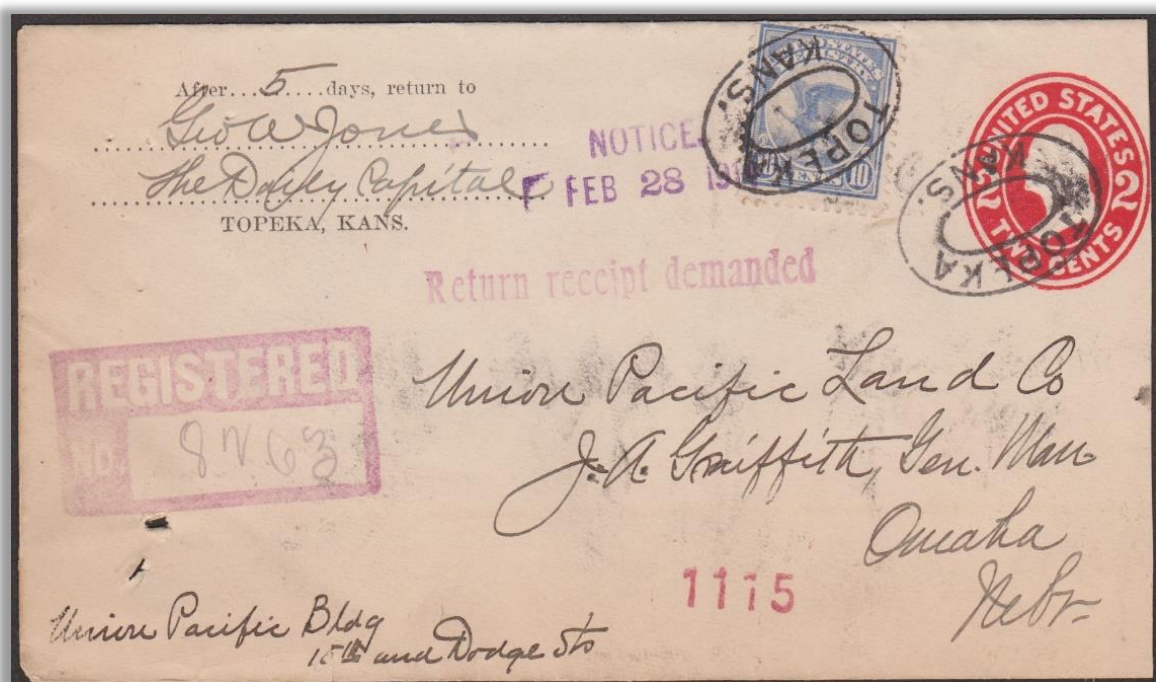 After....5....days, return to
Geo W Jones
The Daily Capital
TOPEKA, KANS.
NOTICE
FEB 28
UNITED STATES
10 CENTS 10
TOPEKA KANS.
UNITED STATES
2 TWO CENTS 2
TOPEKA KANS.
Return receipt demanded
REGISTERED
NO. 8263
Union Pacific Land Co
J. A. Griffith, Gen. Man
Omaha
Nebr-
1115
Union Pacific Bldg
15th and Dodge Sts